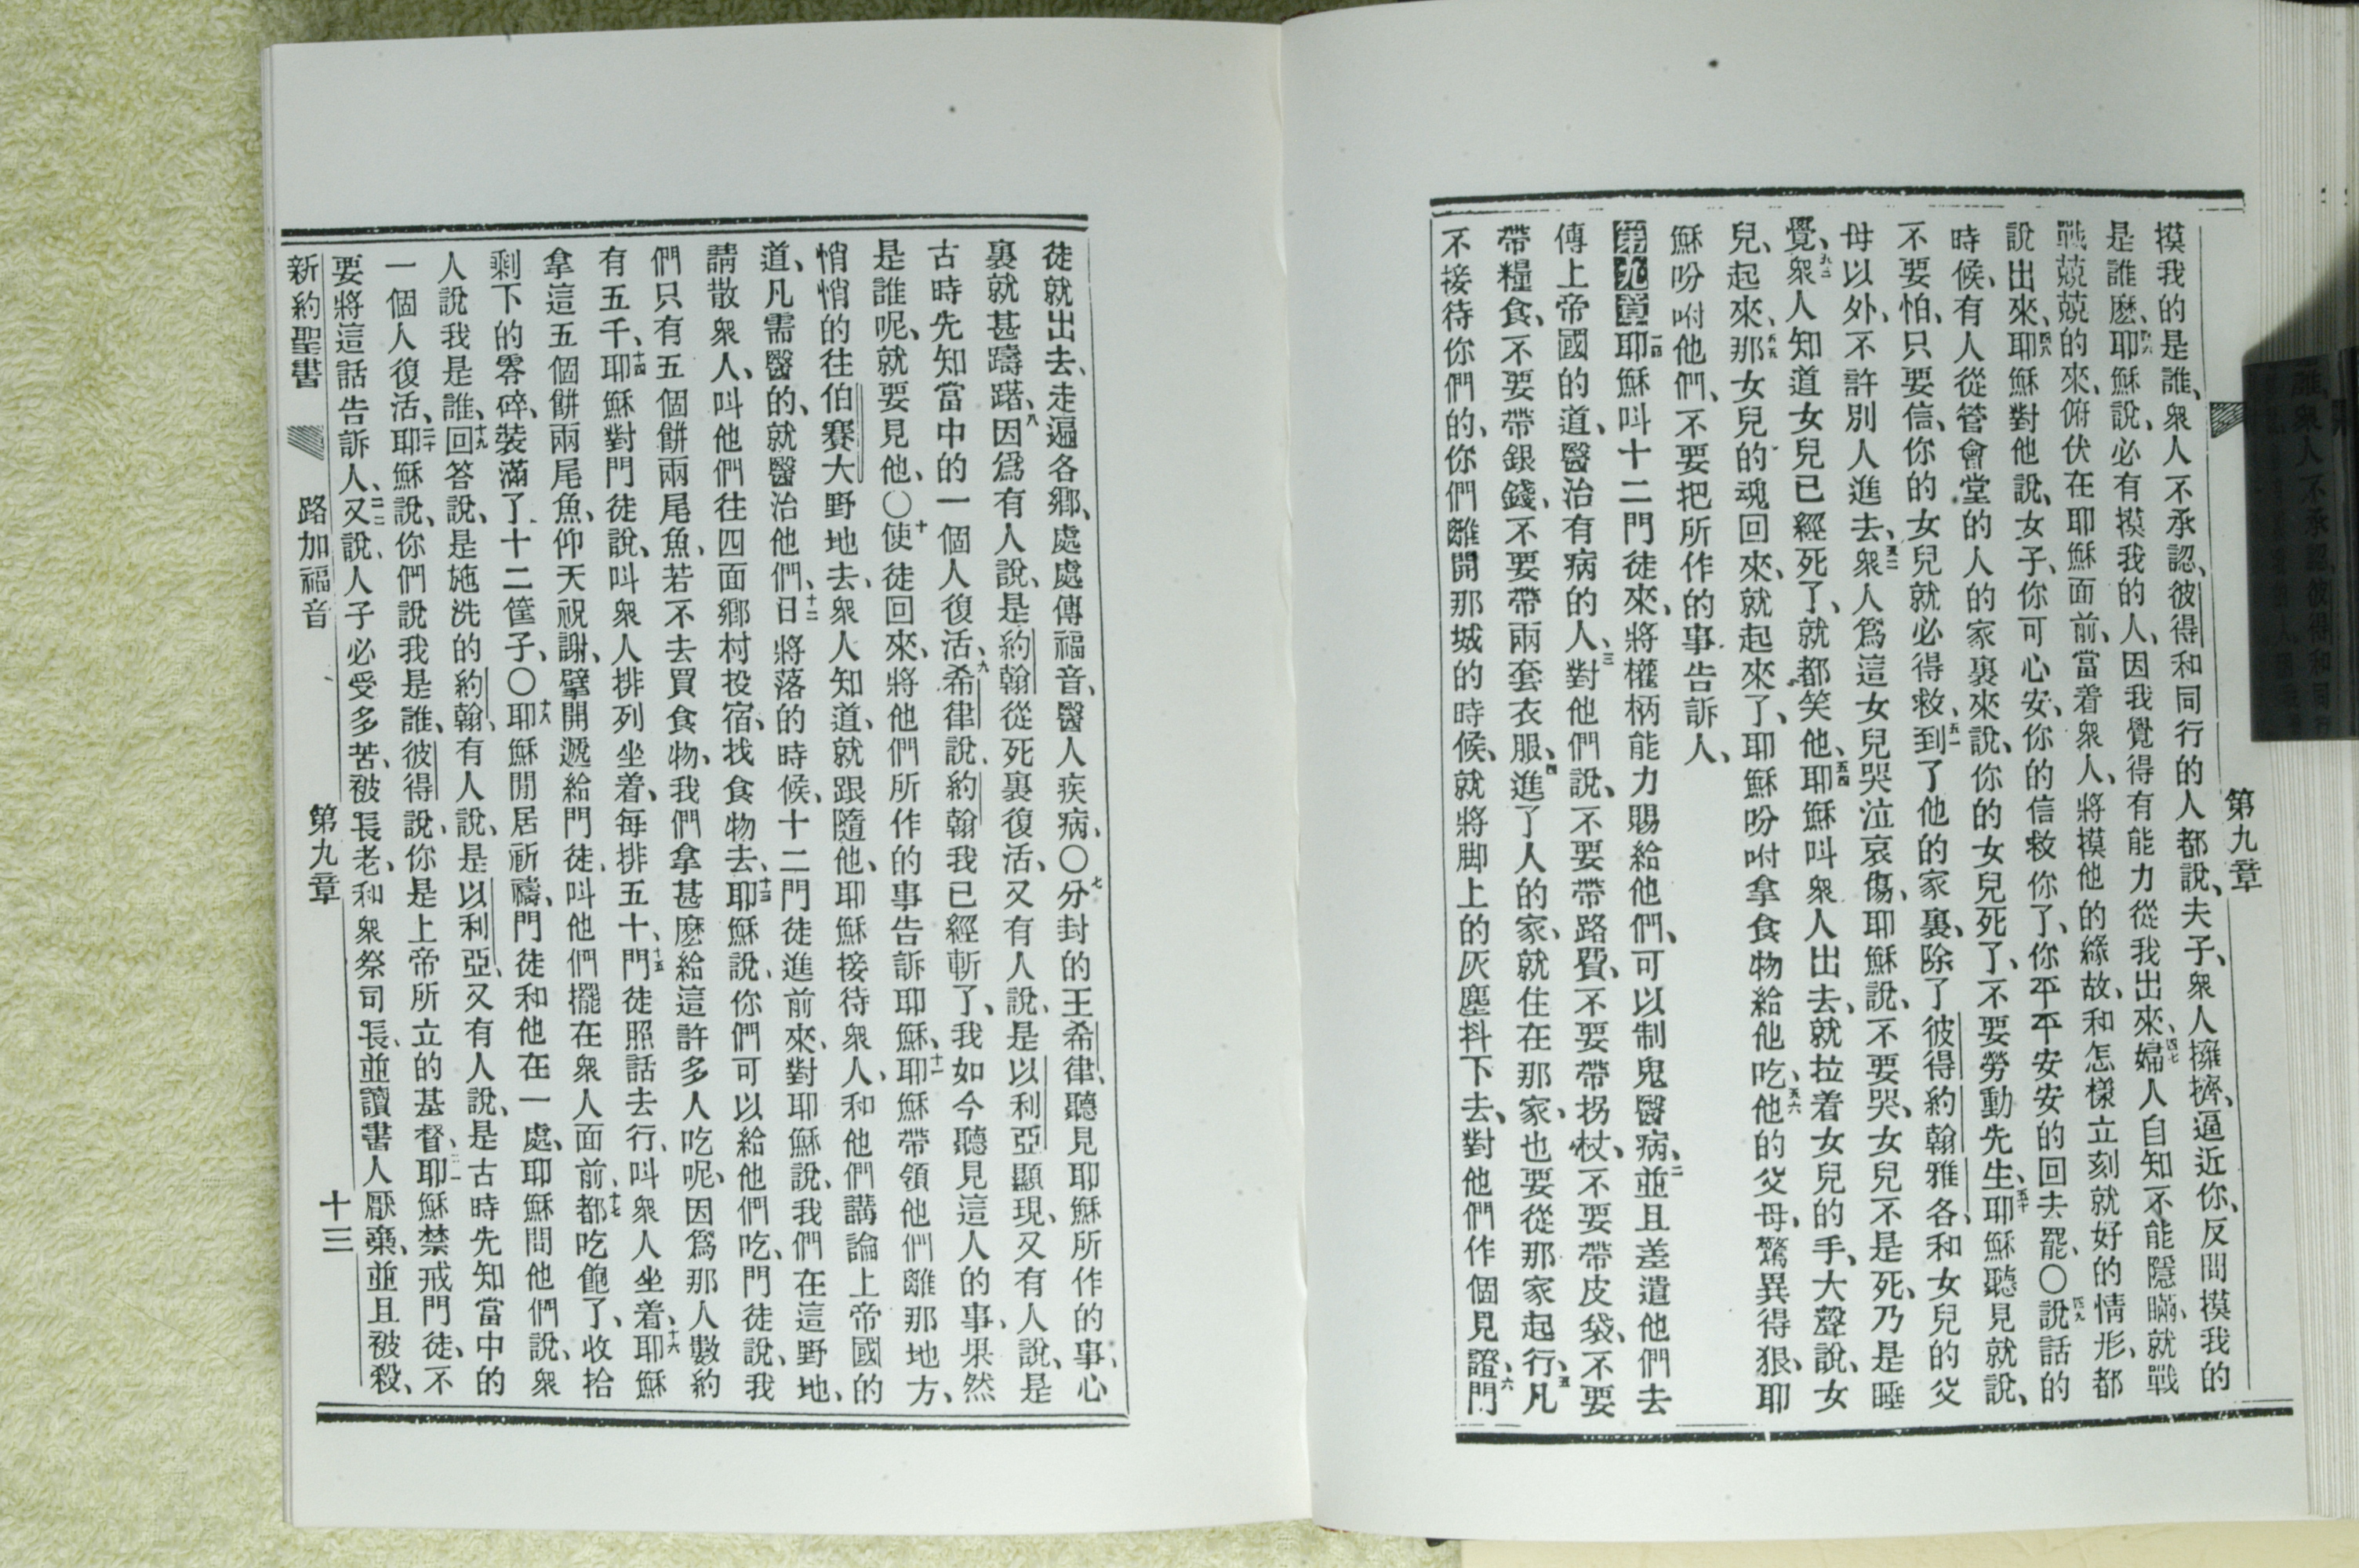 摸我的是誰、衆人不承認、彼得和同行的人都說、夫子、衆人擁擠、逼近你、反問摸我的
是誰麽、四六耶穌說、必有摸我的人、因我覺得有能力從我出來、四七婦人自知不能隱瞞、就戰
戰兢兢的來、俯伏在耶穌面前、當着衆人、將摸他的緣故、和怎樣立刻就好的情形、都
說出來、四八耶穌對他說、女子、你可心安、你的信救你了、你平平安安的回去罷、〇四九說話的
時候、有人從管會堂的人的家裏來說、你的女兒死了、不要勞動先生、五十耶穌聽見就說、
不要怕、只要信、你的女兒就必得救、五一到了他的家裏、除了彼得約翰雅各、和女兒的父
母以外、不許別人進去、五二衆人爲這女兒哭泣哀傷、耶穌說、不要哭、女兒不是死、乃是睡
覺、五三衆人知道女兒已經死了、就都笑他、五四耶穌叫衆人出去、就拉着女兒的手、大聲說、女
兒、起來、五五那女兒的魂回來、就起來了、耶穌吩咐拿食物給他吃、五六他的父母、驚異得狠、耶
穌吩咐他們、不要把所作的事告訴人、
第九章 一耶穌叫十二門徒來、將權柄能力賜給他們、可以制鬼醫病、二並且差遣他們去
傳上帝國的道、醫治有病的人、三對他們說、不要帶路費、不要帶拐杖、不要帶皮袋、不要
帶糧食、不要帶銀錢、不要帶兩套衣服、四進了人的家、就住在那家、也要從那家起行、五凡
不接待你們的、你們離開那城的時候、就將脚上的灰塵抖下去、對他們作個見證、六門
第九章
徒就出去、走遍各鄉、處處傳福音、醫人疾病、〇七分封的王希律、聽見耶穌所作的事、心
裏就甚躊躇、八因爲有人說、是約翰從死裏復活、又有人說、是以利亞顯現、又有人說、是
古時先知當中的一個人復活、九希律說、約翰我已經斬了、我如今聽見這人的事、果然
是誰呢、就要見他、〇十使徒回來、將他們所作的事告訴耶穌、十一耶穌帶領他們離那地方、
悄悄的往伯賽大野地去、衆人知道、就跟隨他、耶穌接待衆人、和他們講論上帝國的
道、凡需醫的、就醫治他們、十二日將落的時候、十二門徒進前來、對耶穌說、我們在這野地、
請散衆人、叫他們往四面鄉村投宿、找食物去、十三耶穌說、你們可以給他們吃、門徒說、我
們只有五個餅兩尾魚、若不去買食物、我們拿甚麽給這許多人吃呢、因爲那人數約
有五千、十四耶穌對門徒說、叫衆人排列坐着、每排五十、十五門徒照話去行、叫衆人坐着、十六耶穌
拿這五個餅兩尾魚、仰天祝謝、擘開遞給門徒、叫他們擺在衆人面前、十七都吃飽了、收拾
剩下的零碎、裝滿了十二筐子、〇十八耶穌閒居祈禱、門徒和他在一處、耶穌問他們說、衆
人說我是誰、十九回答說、是施洗的約翰、有人說、是以利亞、又有人說、是古時先知當中的
一個人復活、二十耶穌說、你們說我是誰、彼得說、你是上帝所立的基督、二一耶穌禁戒門徒、不
要將這話告訴人、二二又說、人子必受多苦、被長老、和衆祭司長、並讀書人厭棄、並且被殺、
新約聖書 路加福音 第九章 十三